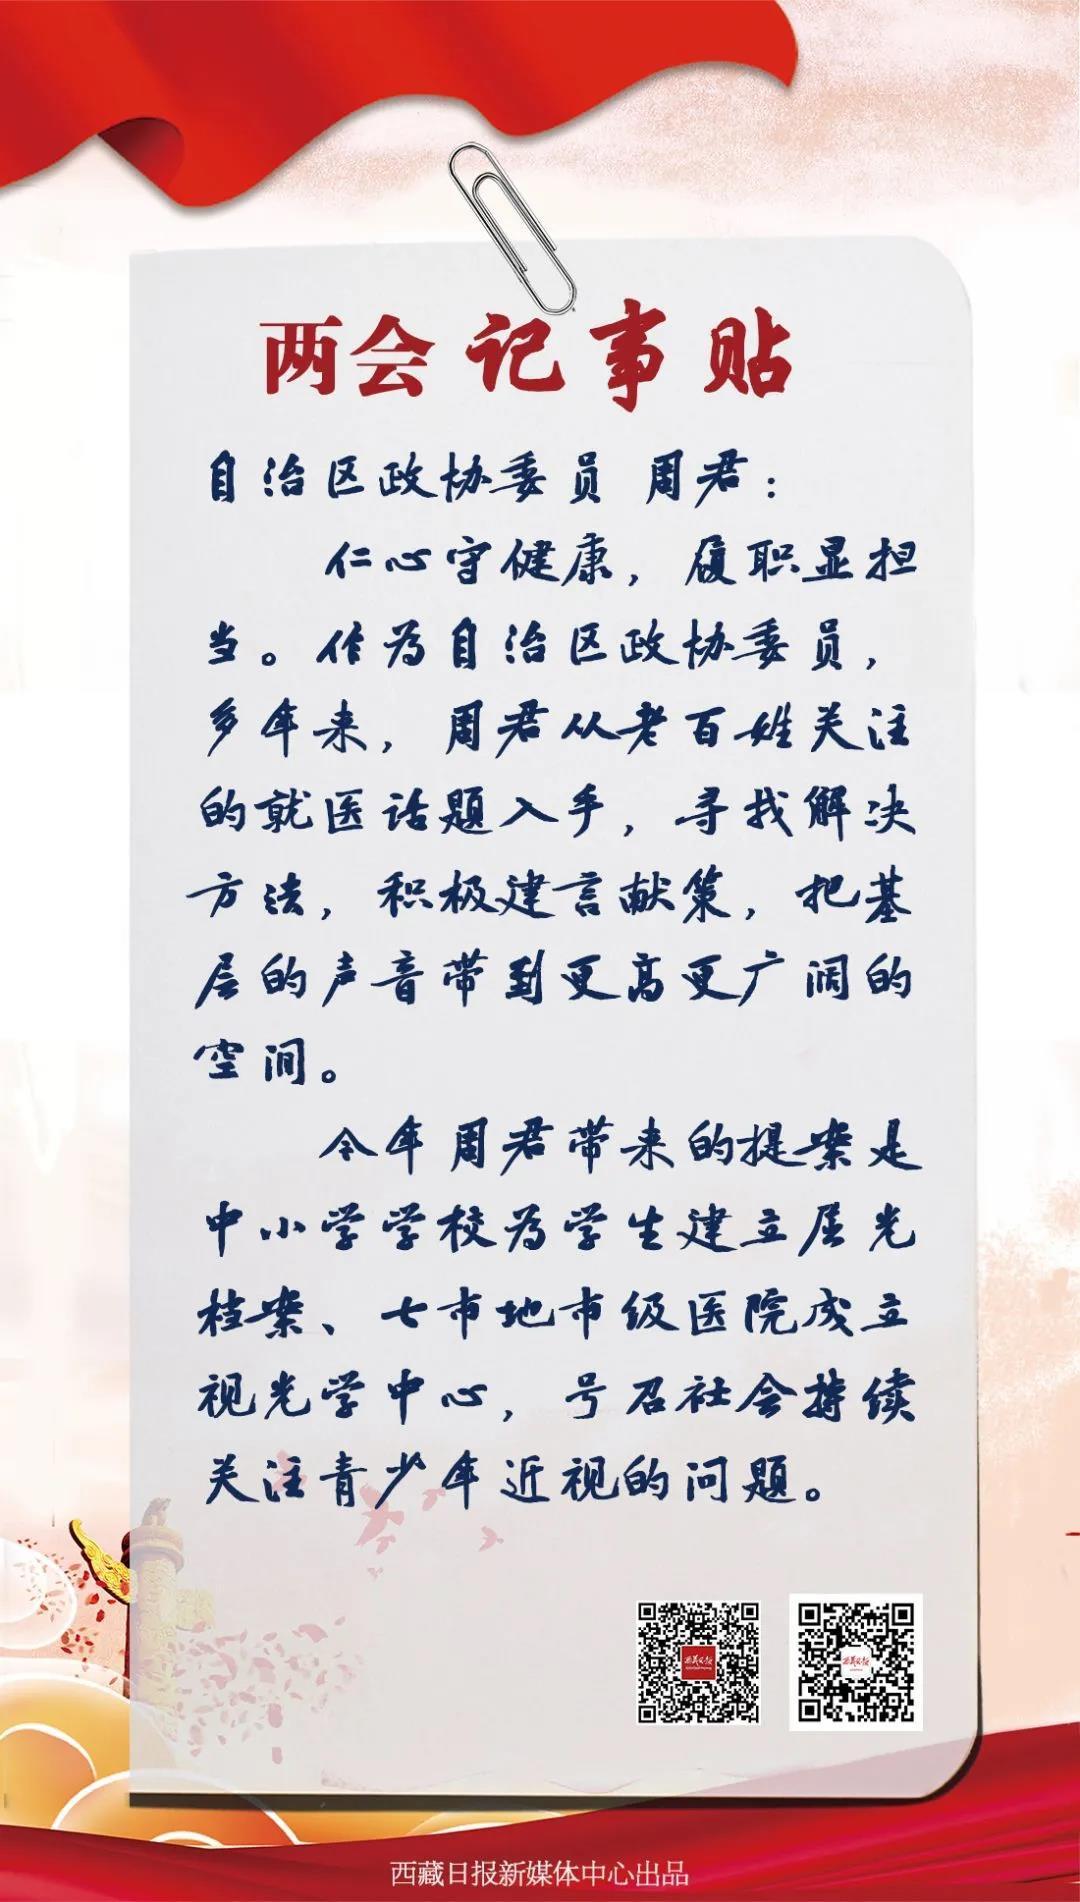 两会记事贴
自治区政协委员 周君：
仁心守健康，履职显担
当。作为自治区政协委员，
多年来，周君从老百姓关注
的就医话题入手，寻找解决
方法，积极建言献策，把基
层的声音带到更高更广阔的
空间。
今年周君带来的提案是
中小学学校为学生建立屈光
档案、七市地市级医院成立
视光学中心，号召社会持续
关注青少年近视的问题。
西藏日报
西藏日报
西藏日报新媒体中心出品